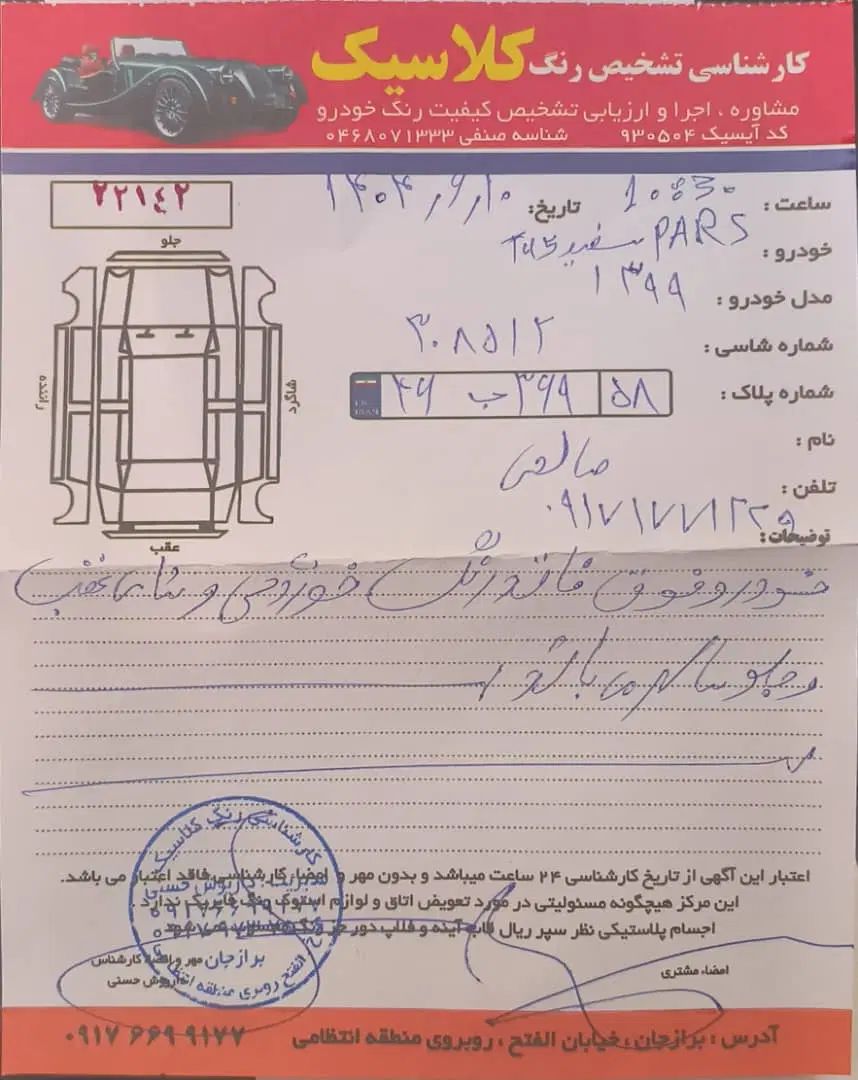 کارشناسی تشخیص رنگ کلاسیک
مشاوره ، اجرا و ارزیابی تشخیص کیفیت رنگ خودرو
کد آیسیک ۹۳۰۵۰۴ شناسه صنفی ۰۴۶۸۰۷۱۳۳۳
۲۲۱٤۲
ساعت : ۱۰:۳۰ تاریخ: ۱۴۰۴/۶/۱۰
جلو
خودرو : PARS سفید
مدل خودرو : ۱۳۹۹
شماره شاسی : ۳۰۸۵۱۲
راننده
شاگرد
شماره پلاک : ۴۶ ب ۳۶۹ ۵۸
نام : صالحی
تلفن : ۰۹۱۷۱۷۷۱۲۲۹
عقب
توضیحات:
خودرو فوق فاقد رنگ خوردگی و شاسی عقب
و جلو سالم می باشد
اعتبار این آگهی از تاریخ کارشناسی ۲۴ ساعت میباشد و بدون مهر و امضاء کارشناسی فاقد اعتبار می باشد.
این مرکز هیچگونه مسئولیتی در مورد تعویض اتاق و لوازم استوک رنگ فابریک ندارد .
اجسام پلاستیکی نظر سپر ریال قاب آینه و فلاپ دور جز رنگ
امضاء مشتری
مهر و امضاء کارشناس
داریوش حسنی
کارشناسی رنگ کلاسیک
مدیریت: داریوش حسنی
برازجان
الفتح روبروی منطقه
آدرس : برازجان ، خیابان الفتح ، روبروی منطقه انتظامی ۰۹۱۷ ۶۶۹ ۹۱۷۷